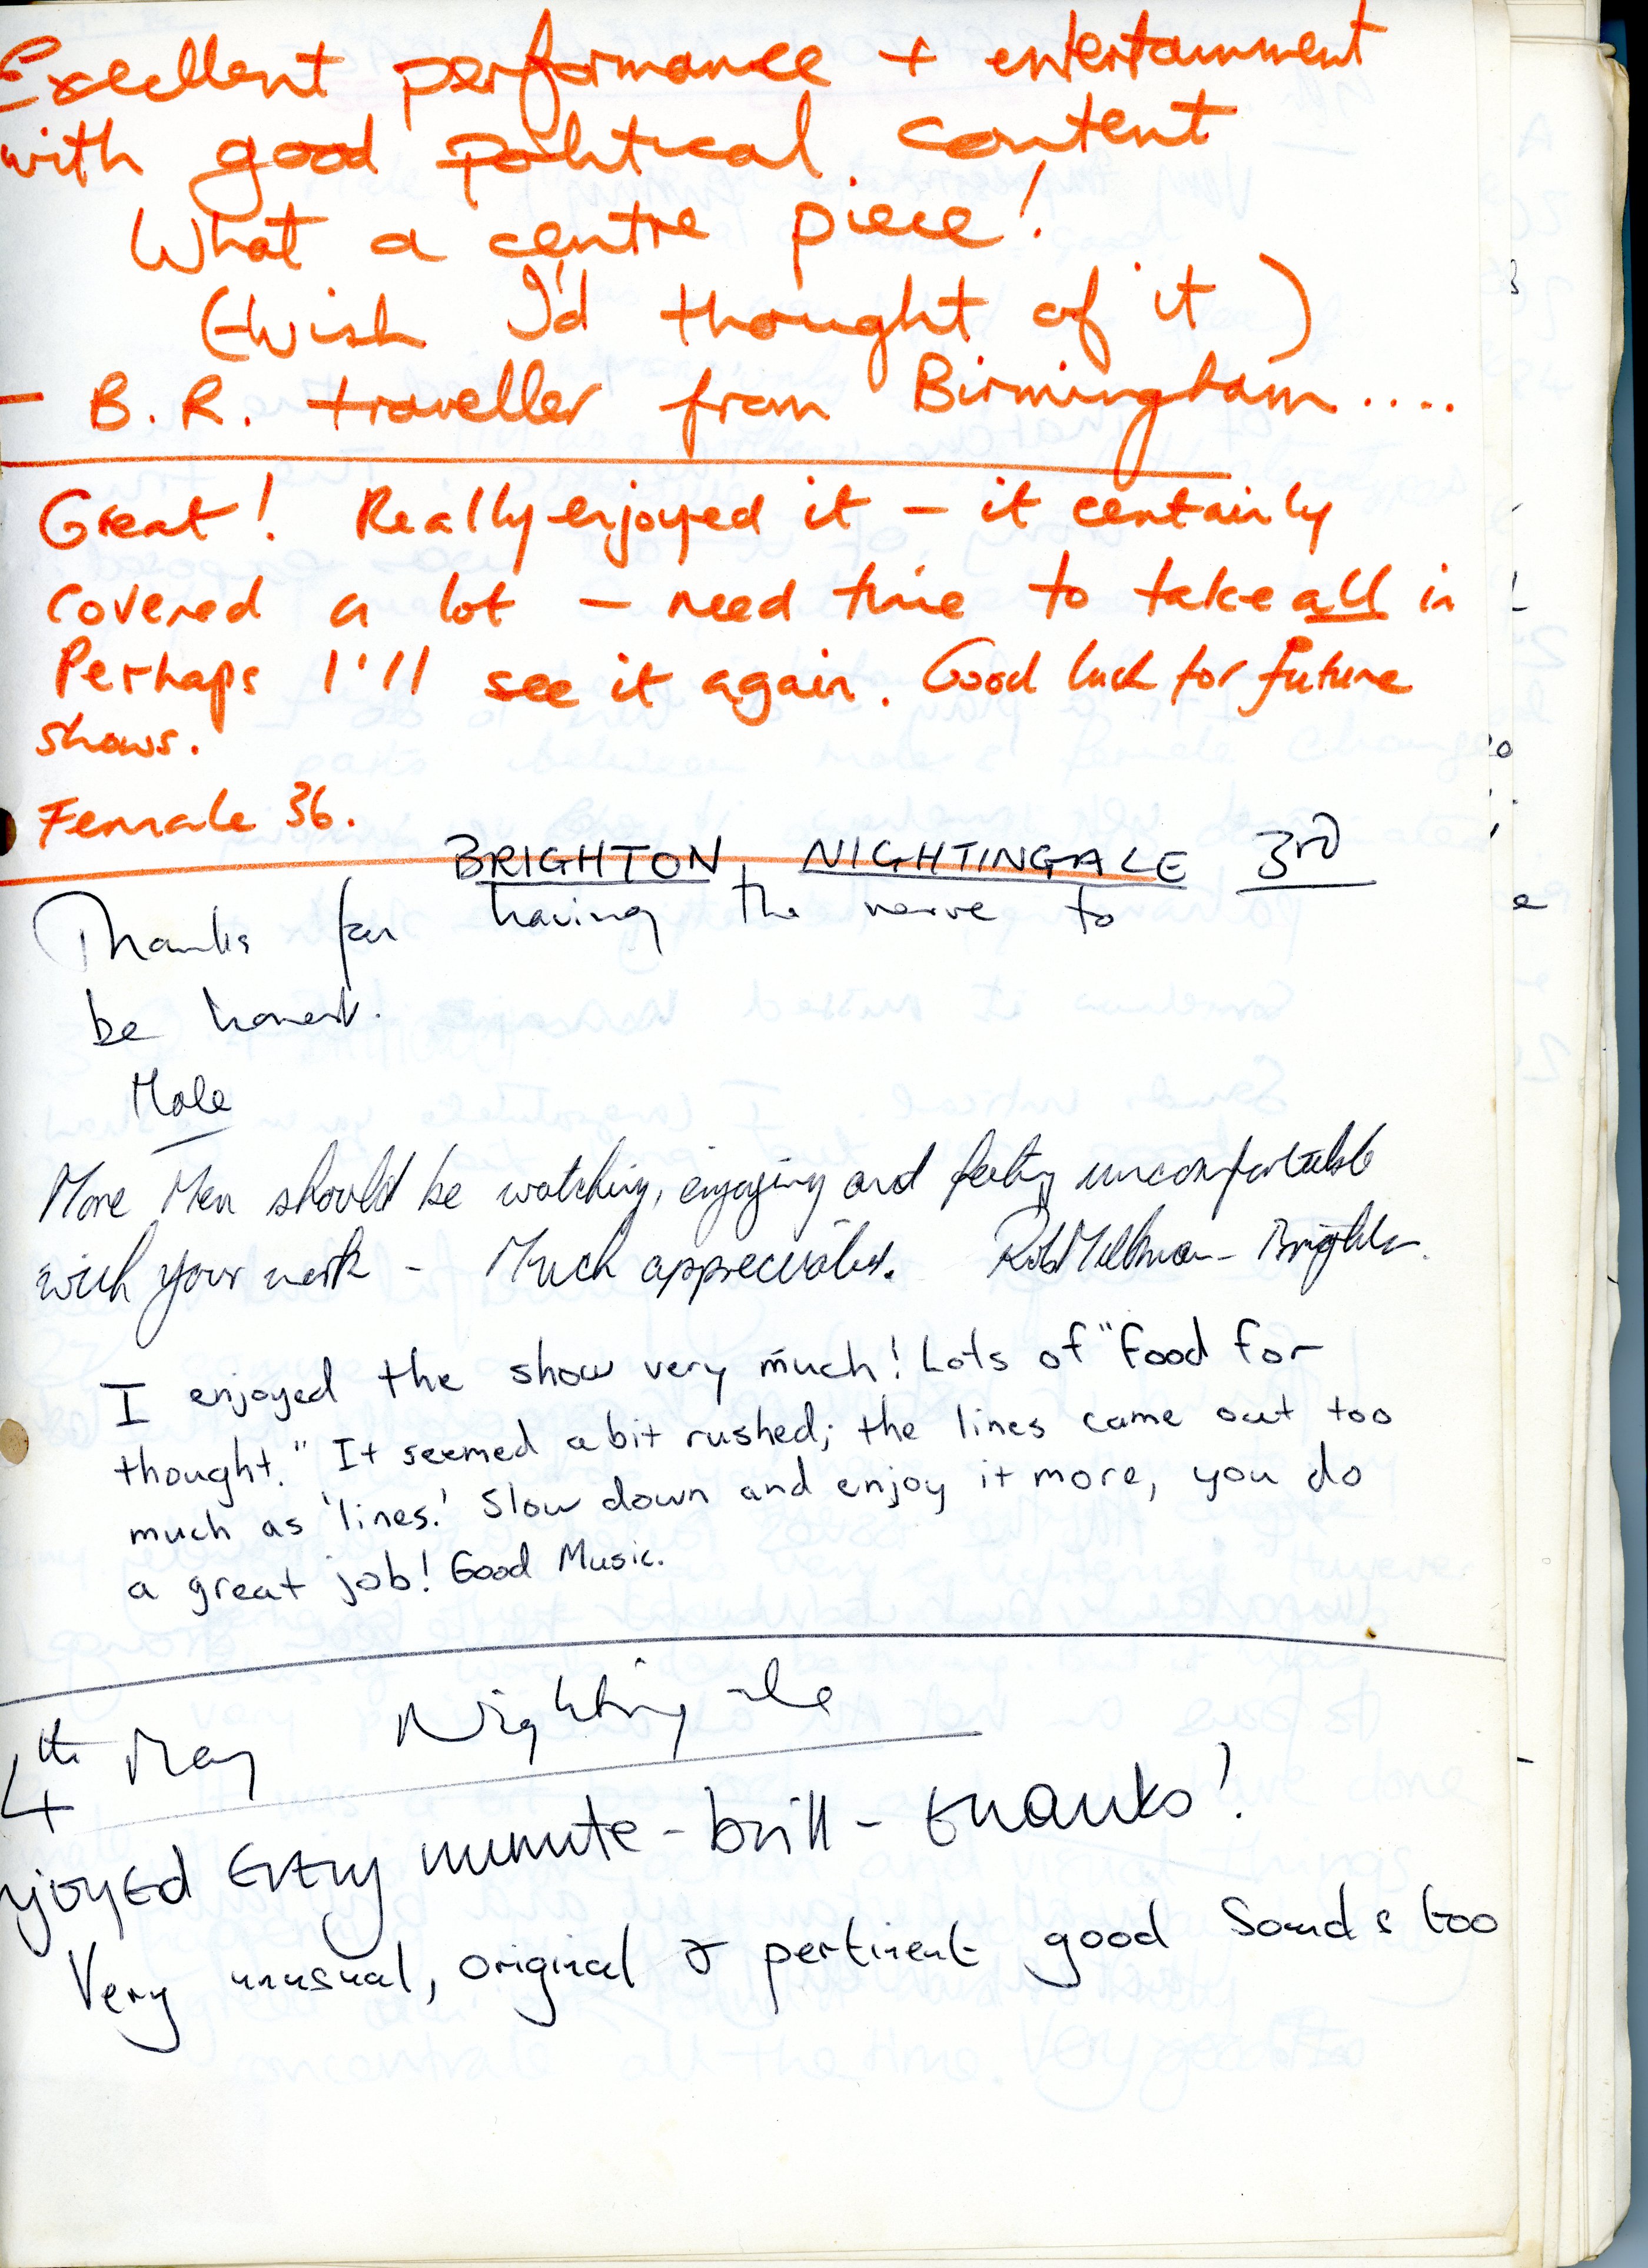 Excellent performance + entertainment
with good political content
What a centre piece!
(Wish I'd thought of it)
- B.R. traveller from Birmingham....
Great! Really enjoyed it - it certainly
covered a lot - need time to take all in
Perhaps I'll see it again. Good luck for future
shows.
Female 36.
BRIGHTON NIGHTINGALE 3rd
Thanks for having the nerve to
be honest.
Male
More Men should be watching, enjoying and feeling uncomfortable
with your work - Much appreciated. Rob - Brighton.
I enjoyed the show very much! Lots of "food for
thought." It seemed a bit rushed; the lines came out too
much as 'lines.' Slow down and enjoy it more, you do
a great job! Good Music.
4th May Nightingale
njoyed Every minute - brill - thanks!
Very unusual, original & pertinent good Sounds too